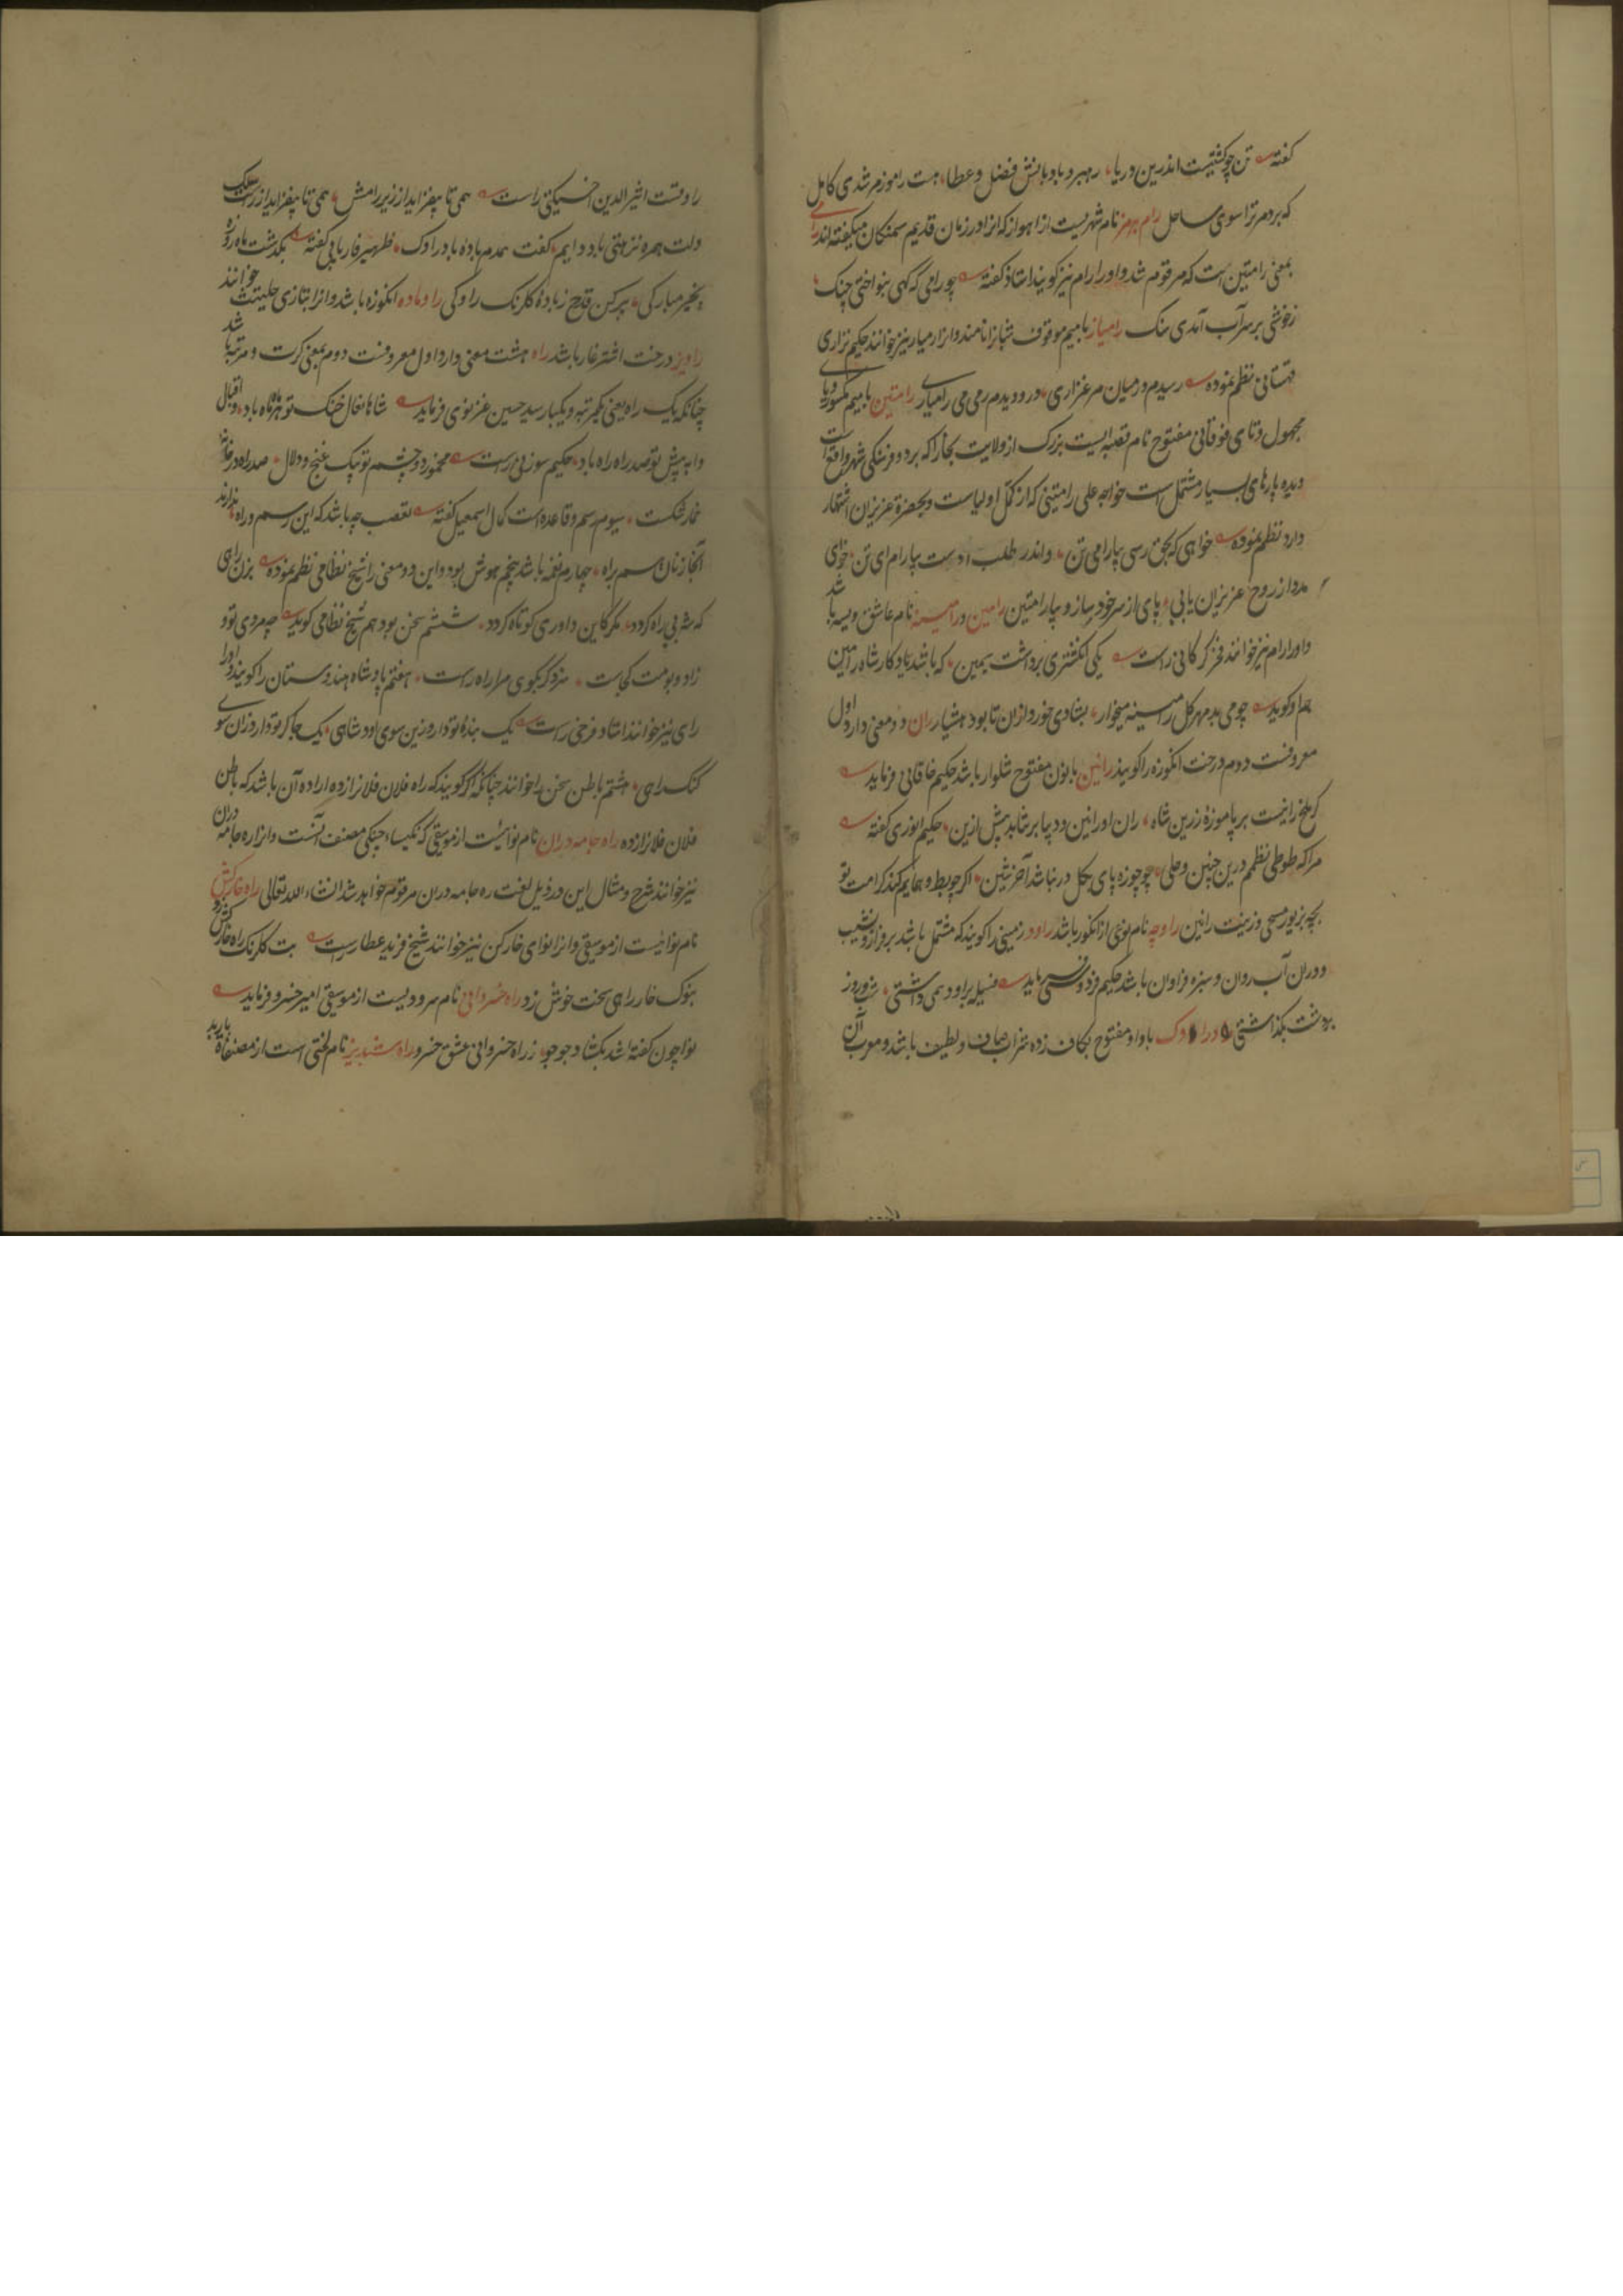 گفته تن چو کشتیست اندرین دریا رهبر و بادبانش فضل و عطا هست راموز مرشدی کامل
که برد مر ترا سوی ساحل رام هرمز نام شهریست از اهواز که انرا در زمان قدیم سمنکان میکفته اند رامی
بمعنی رامتین است که مرقوم شد و او را رام نیز کویند استاد گفته چو رامی که کهی بنواختی چنک
زخوشی بر سر آب آمدی سنک رامیار بامیم موقوف شبانرا نامند و انرا رمیار نیز خوانند حکیم نزاری
قهستانی نظم نموده رسیدم در میان مرغزاری در و دیدم رمی می رامیاری رامتین بامیم مکسور و یای
مجهول و تای فوقانی مفتوح نام قصبه ایست بزرک از ولایت بخارا که بر دو فرسنکی شهر واقع است
و دیه پارهای بسیار مشتمل است خواجه علی رامتینی که از کمّل اولیاست و بحضرة عزیزان اشتهار
دارد نظم نموده خواهی که بحق رسی بیارام ای تن واندر طلب دوست بیارام ای تن خوای
مدد از روح عزیزان یابی پای از سر خود بساز و بیا رامتین رامین و رامینه نام عاشق ویسه باشد
و او را رام نیز خوانند فخر کرکانی راست یکی انکشتری برداشت یمین که باشد یادکار شاه رامین
هم او کوید چو می بد مهر کل رامینه میخوار بشادی خورد ازان تا بود هشیار ران دو معنی دارد اول
معروفست دوم درخت انکوزه را کویند رانین بانون مفتوح شلوار باشد حکیم خاقانی فرماید
کرملخ رانیست بر پا موزهٔ زرین شاه ران او رانین دیبا بر نتابد پیش ازین حکیم انوری کفته
مرا که طوطی نظمم درین چنین وحلی چو چوزه پای بکل در نباشد آخر شین اکر چو بط و همایم کند کرامت تو
بچه بزیور مسحی و زینت رانین راوچه نام نوعی از انکور باشد راود زمینی را کویند که مشتمل باشد بر فراز و نشیب
و دران آب روان و سبزه فراوان باشد حکیم فردوسی فرماید فسیله براود همی داشتی شب و روز
بر دشت بکذاشتی راوک باواو مفتوح بکاف زده شراب صاف و لطیف باشد و معرب آن
راوقست اثیرالدین اخسیکتی راست همی تا بیفزاید از زیر رامش همی تا بیفزاید از راوک
دلت همره نزهتی باد دایم کفت همدم بادهٔ باد راوک ظهیر فاریابی کفته بکذشت ماه روزه
بخیر و مبارکی پر کن قدح ز بادهٔ کلرنک راوکی راوماده انکوزه باشد و انرا بتازی حلیتیث خوانند
راویز درخت اشترغار باشد راه هشت معنی دارد اول معروفست دوم بمعنی کرت و مرتبه باشد
چنانکه یک راه یعنی یکمرتبه و یکبار سید حسن غزنوی فرماید شاها نعال خنک تو هر ماه ماه باد اقبال
وا به پیش تو صد راه راه باد حکیم سوزنی راست مخمور دو چشم تو بیک غنج و دلال صد راه در خانهٔ
خمار شکست سیوم رسم و قاعده است کمال اسمعیل کفته تعصب چه باشد که این رسم و راه ندارند
آنجا زنان سم براه چهارم نغمه باشد پنجم هوش بود و این دو معنی را شیخ نظامی نظم نموده بزن راهی
که شه بی راه کردد مکر کاین داوری کوتاه کردد ششم سخن بود هم شیخ نظامی کوید چه مردی تو و
زاد و بومت کجاست سزد کر بکوی مرا راه راست هفتم پادشاه هندوستان را کویند و او را
رای نیز خوانند استاد فرخی راست یک بندهٔ تو دارد زین سوی اود شاهی یک چاکر تو دارد زان سوی
کنک راهی هشتم باطن سخن را خوانند چنانکه اکر کویند که راه فلان فلانرا زده اراده آن باشد که باطن
فلان فلانرا زده راه جامه دران نام نوائیست از موسیقی که نکیسا چنکی مصنف آنست وانرا ره جامه دران
نیز خوانند شرح و مثال این در ذیل لغت ره جامه دران مرقوم خواهد شد انشاء الله تعالی راه خارکش
نام نوائیست از موسیقی و انرا نوای خارکن نیز خوانند شیخ فرید عطار راست بت کلرنک راه خارکش زد
بنوک خار راهی سخت خوش زد راه خسروانی نام سرودیست از موسیقی امیر خسرو فرماید
نوا چون کفته شد بکشاد جوجو ز راه خسروانی عشق خسرو راه شبدیز نام لحنی است از مصنفات باربد